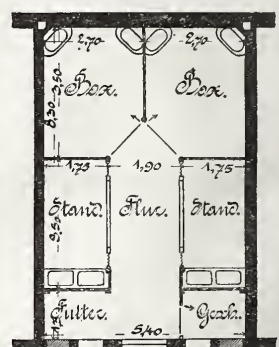 2,70 2,70
Box. Box.
1,75 1,90 1,75
Stand. Flur. Stand.
Futter. Gesch.
5,40